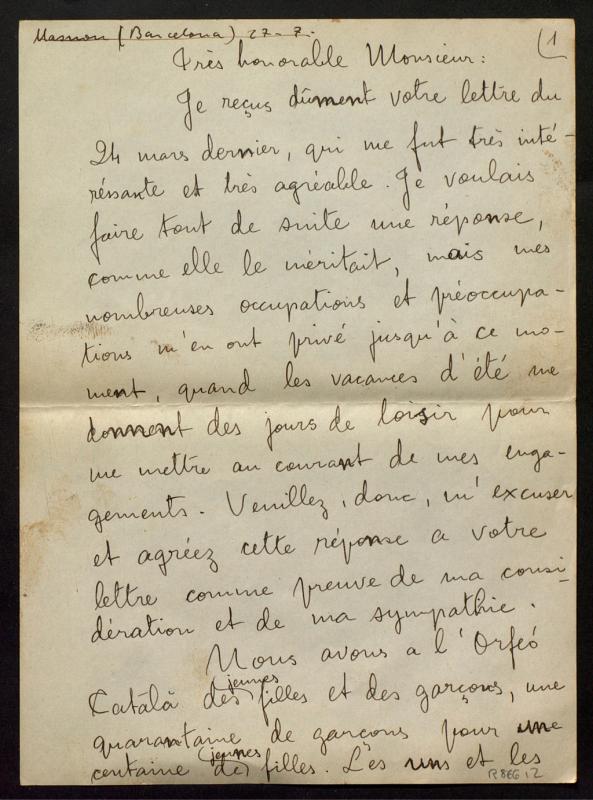 Masnou (Barcelona) 27-7.
(1
Très honorable Monsieur:
Je reçus dûment votre lettre du
24 mars dernier, qui me fut très inté-
réssante et très agréable. Je voulais
faire tout de suite une réponse,
comme elle le méritait, mais mes
nombreuses occupations et préoccupa-
tions m'en ont privé jusqu'à ce mo-
ment, quand les vacances d'été me
donnent des jours de loisir pour
me mettre au courant de mes enga-
gements. Veuillez, donc, m'excuser
et agréez cette réponse a votre
lettre comme preuve de ma consi-
dération et de ma sympathie.
Nous avons a l'Orfeó
Català des jeunes filles et des garçons, une
quarantaine de garçons pour une
centaine de jeunes filles. Les uns et les
R 866, 12